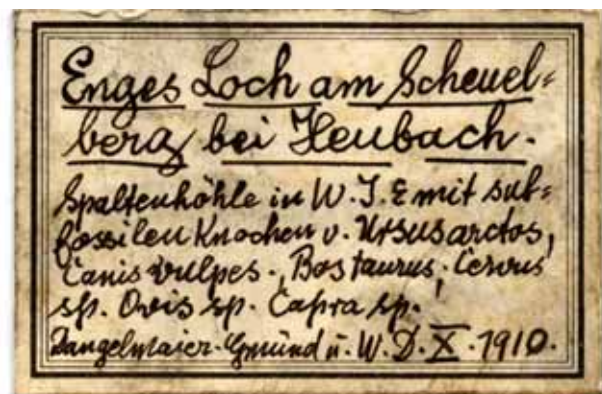 Enges Loch am Scheuel=
berg bei Heubach.
Spaltenhöhle in W. J. E mit sub=
fossilen Knochen v. Ursus arctos,
Canis vulpes., Bos taurus, Cervus
sp. Ovis sp. Capra sp.
Dangelmaier-Gmünd ü. W. D. X. 1910.